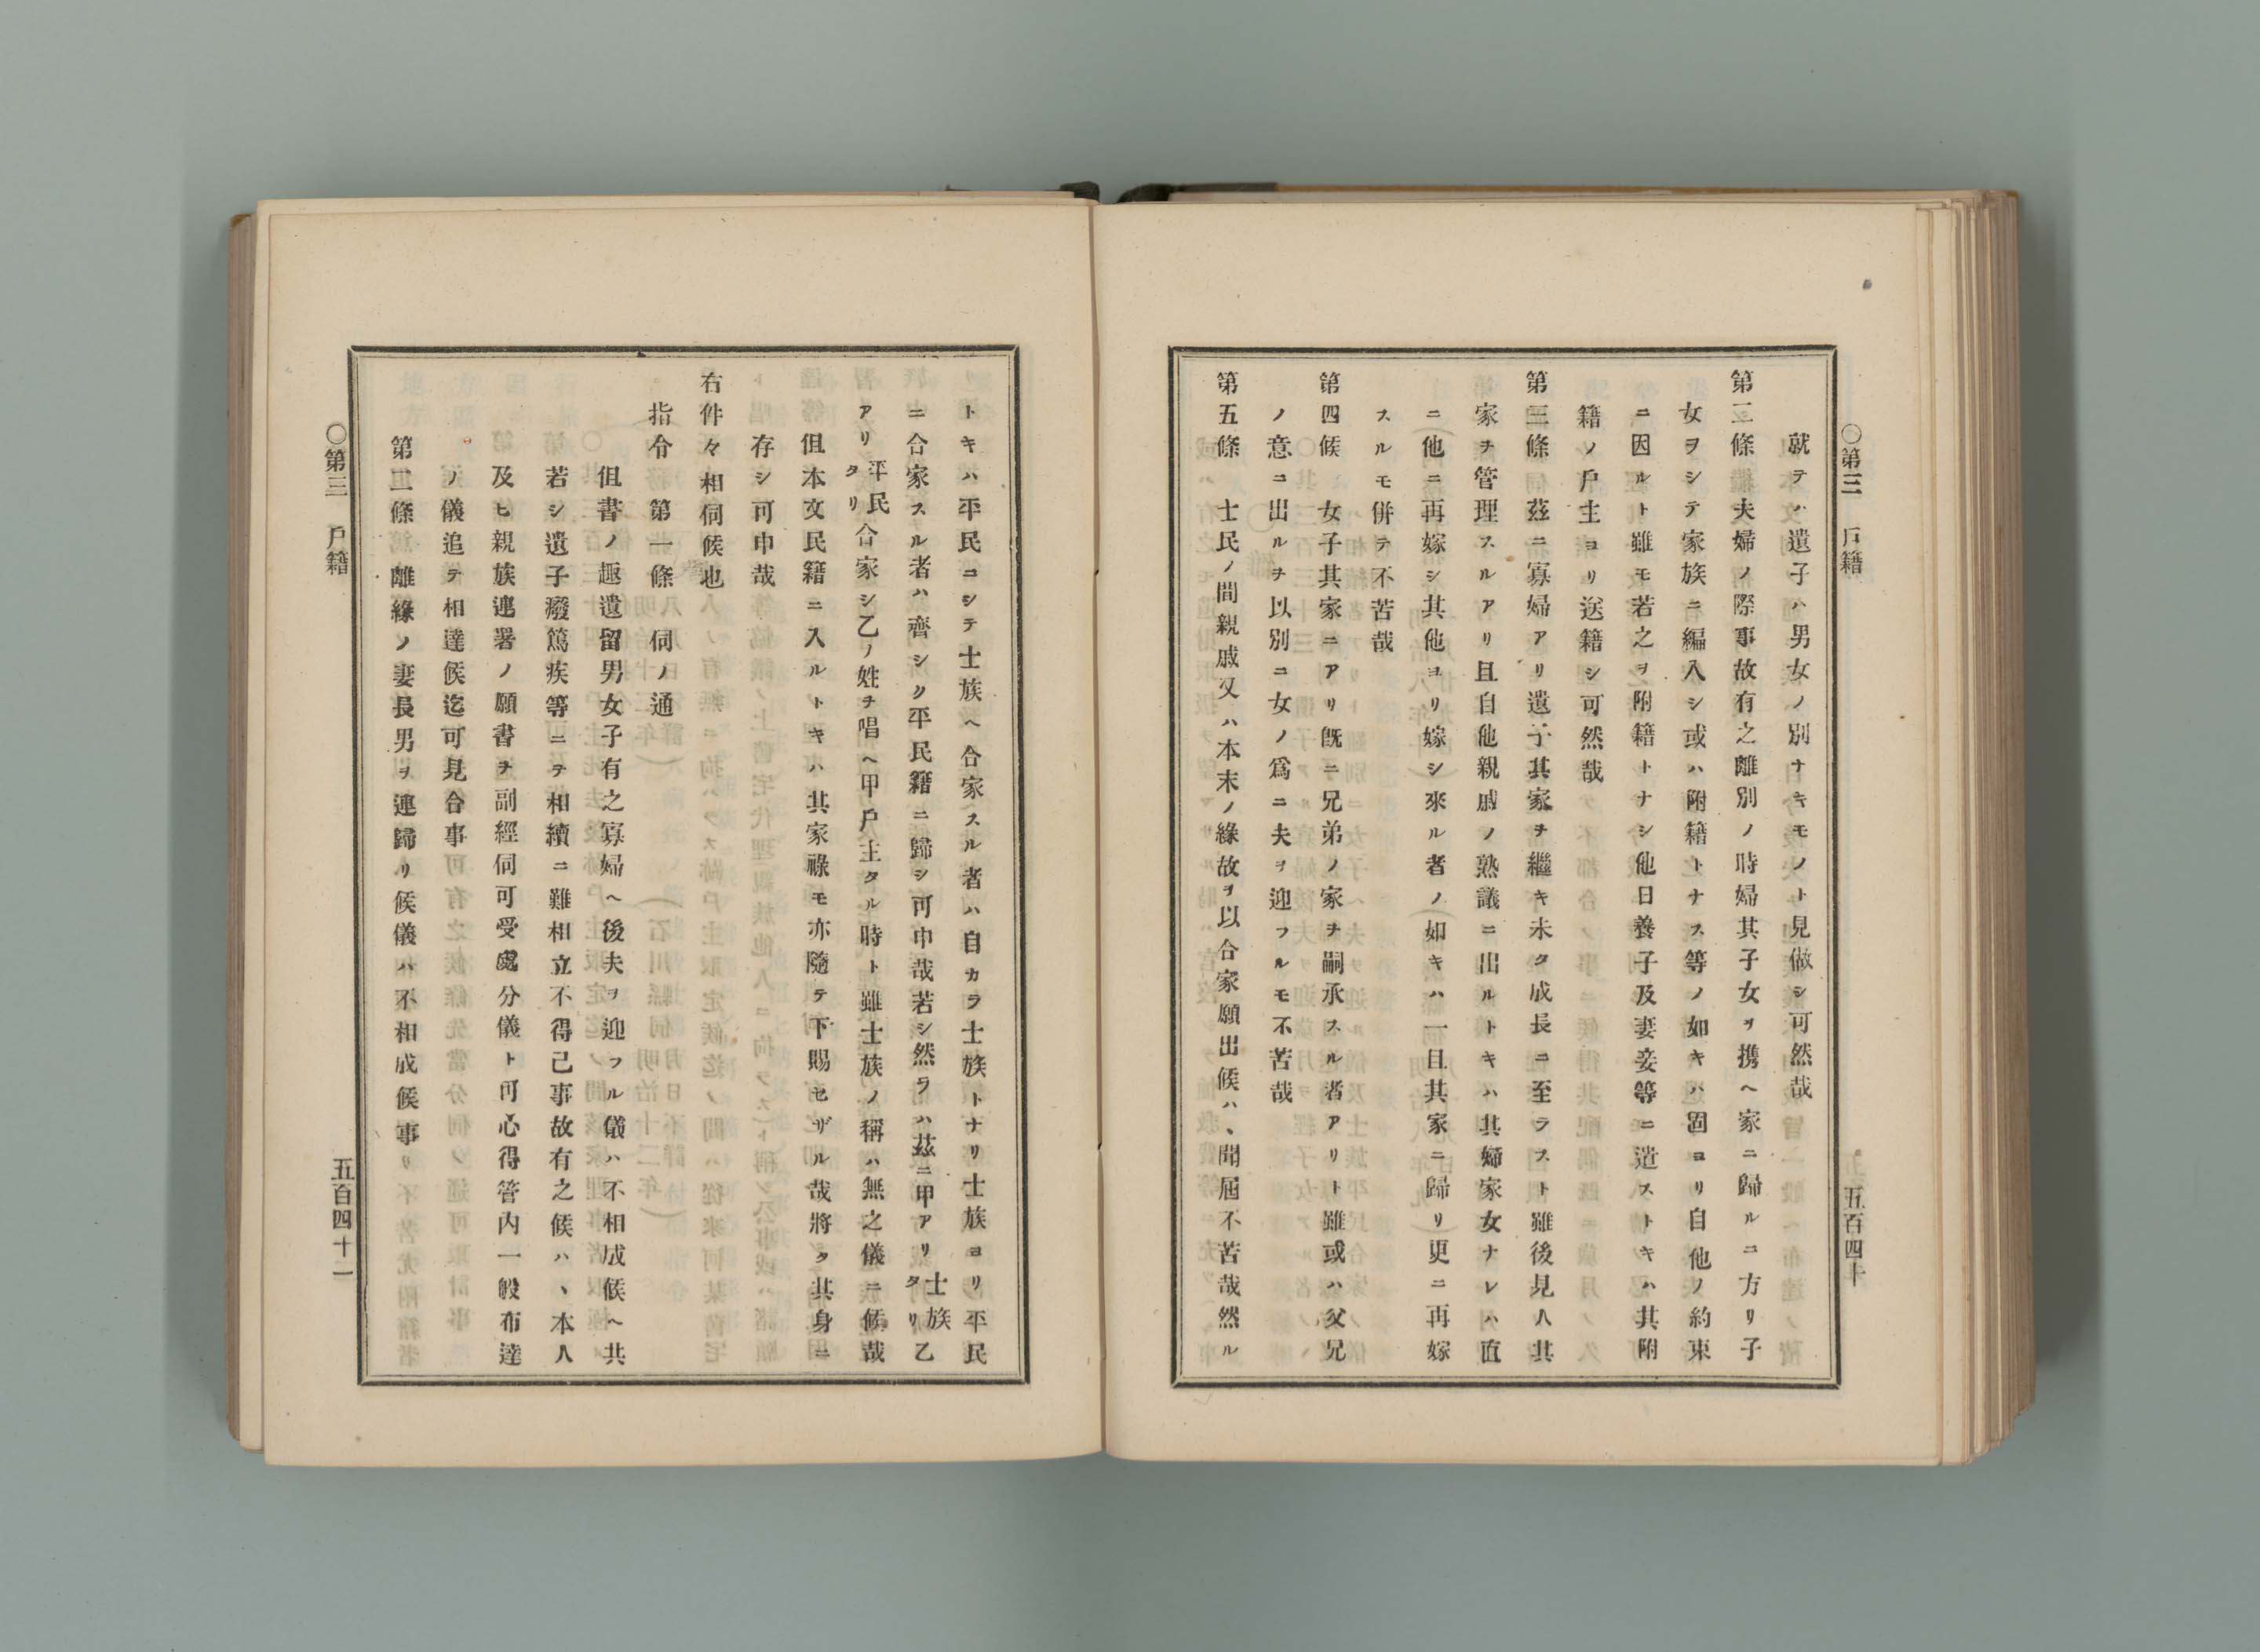 ○第三　戸籍
五百四十
就テハ遺子ハ男女ノ別ナキモノト見做シ可然哉
第二條　夫婦ノ際事故有之離別ノ時婦其子女ヲ携ヘ家ニ歸ルニ方リ子
女ヲシテ家族ニ編入シ或ハ附籍トナス等ノ如キハ固ヨリ自他ノ約束
ニ因ルト雖モ若之ヲ附籍トナシ他日養子及妻妾等ニ遣ストキハ其附
籍ノ戸主ヨリ送籍シ可然哉
第三條　茲ニ寡婦アリ遺子其家ヲ繼キ未タ成長ニ至ラスト雖後見人其
家ヲ管理スルアリ且自他親戚ノ熟議ニ出ルトキハ其婦家女ナレハ直
ニ他ニ再嫁シ其他ヨリ嫁シ來ル者ノ如キハ一旦其家ニ歸リ更ニ再嫁
スルモ併テ不苦哉
第四候　女子其家ニアリ既ニ兄弟ノ家ヲ嗣承スル者アリト雖或ハ父兄
ノ意ニ出ルヲ以別ニ女ノ爲ニ夫ヲ迎フルモ不苦哉
第五條　士民ノ間親戚又ハ本末ノ緣故ヲ以合家願出候ハヽ聞屆不苦哉然ル
トキハ平民ニシテ士族ヘ合家スル者ハ自カラ士族トナリ士族ヨリ平民
ニ合家スル者ハ齊シク平民籍ニ歸シ可申哉若シ然ラハ茲ニ甲アリ士族タリ乙
アリ平民タリ合家シ乙ノ姓ヲ唱ヘ甲戸主タル時ト雖士族ノ稱ハ無之儀ニ候哉
但本文民籍ニ入ルトキハ其家祿モ亦隨テ下賜セザル哉將タ其身ニ
存シ可申哉
右件々相伺候也
指令　第一條　伺ノ通
但書ノ趣遺留男女子有之寡婦ヘ後夫ヲ迎フル儀ハ不相成候ヘ共
若シ遺子癈篤疾等ニテ相續ニ難相立不得已事故有之候ハヽ本人
及ヒ親族連署ノ願書ヲ副經伺可受處分儀ト可心得管内一般布達
ノ儀追テ相達候迄可見合事
第二條離緣ノ妻長男ヲ連歸リ候儀ハ不相成候事
○第三　戸籍
五百四十一